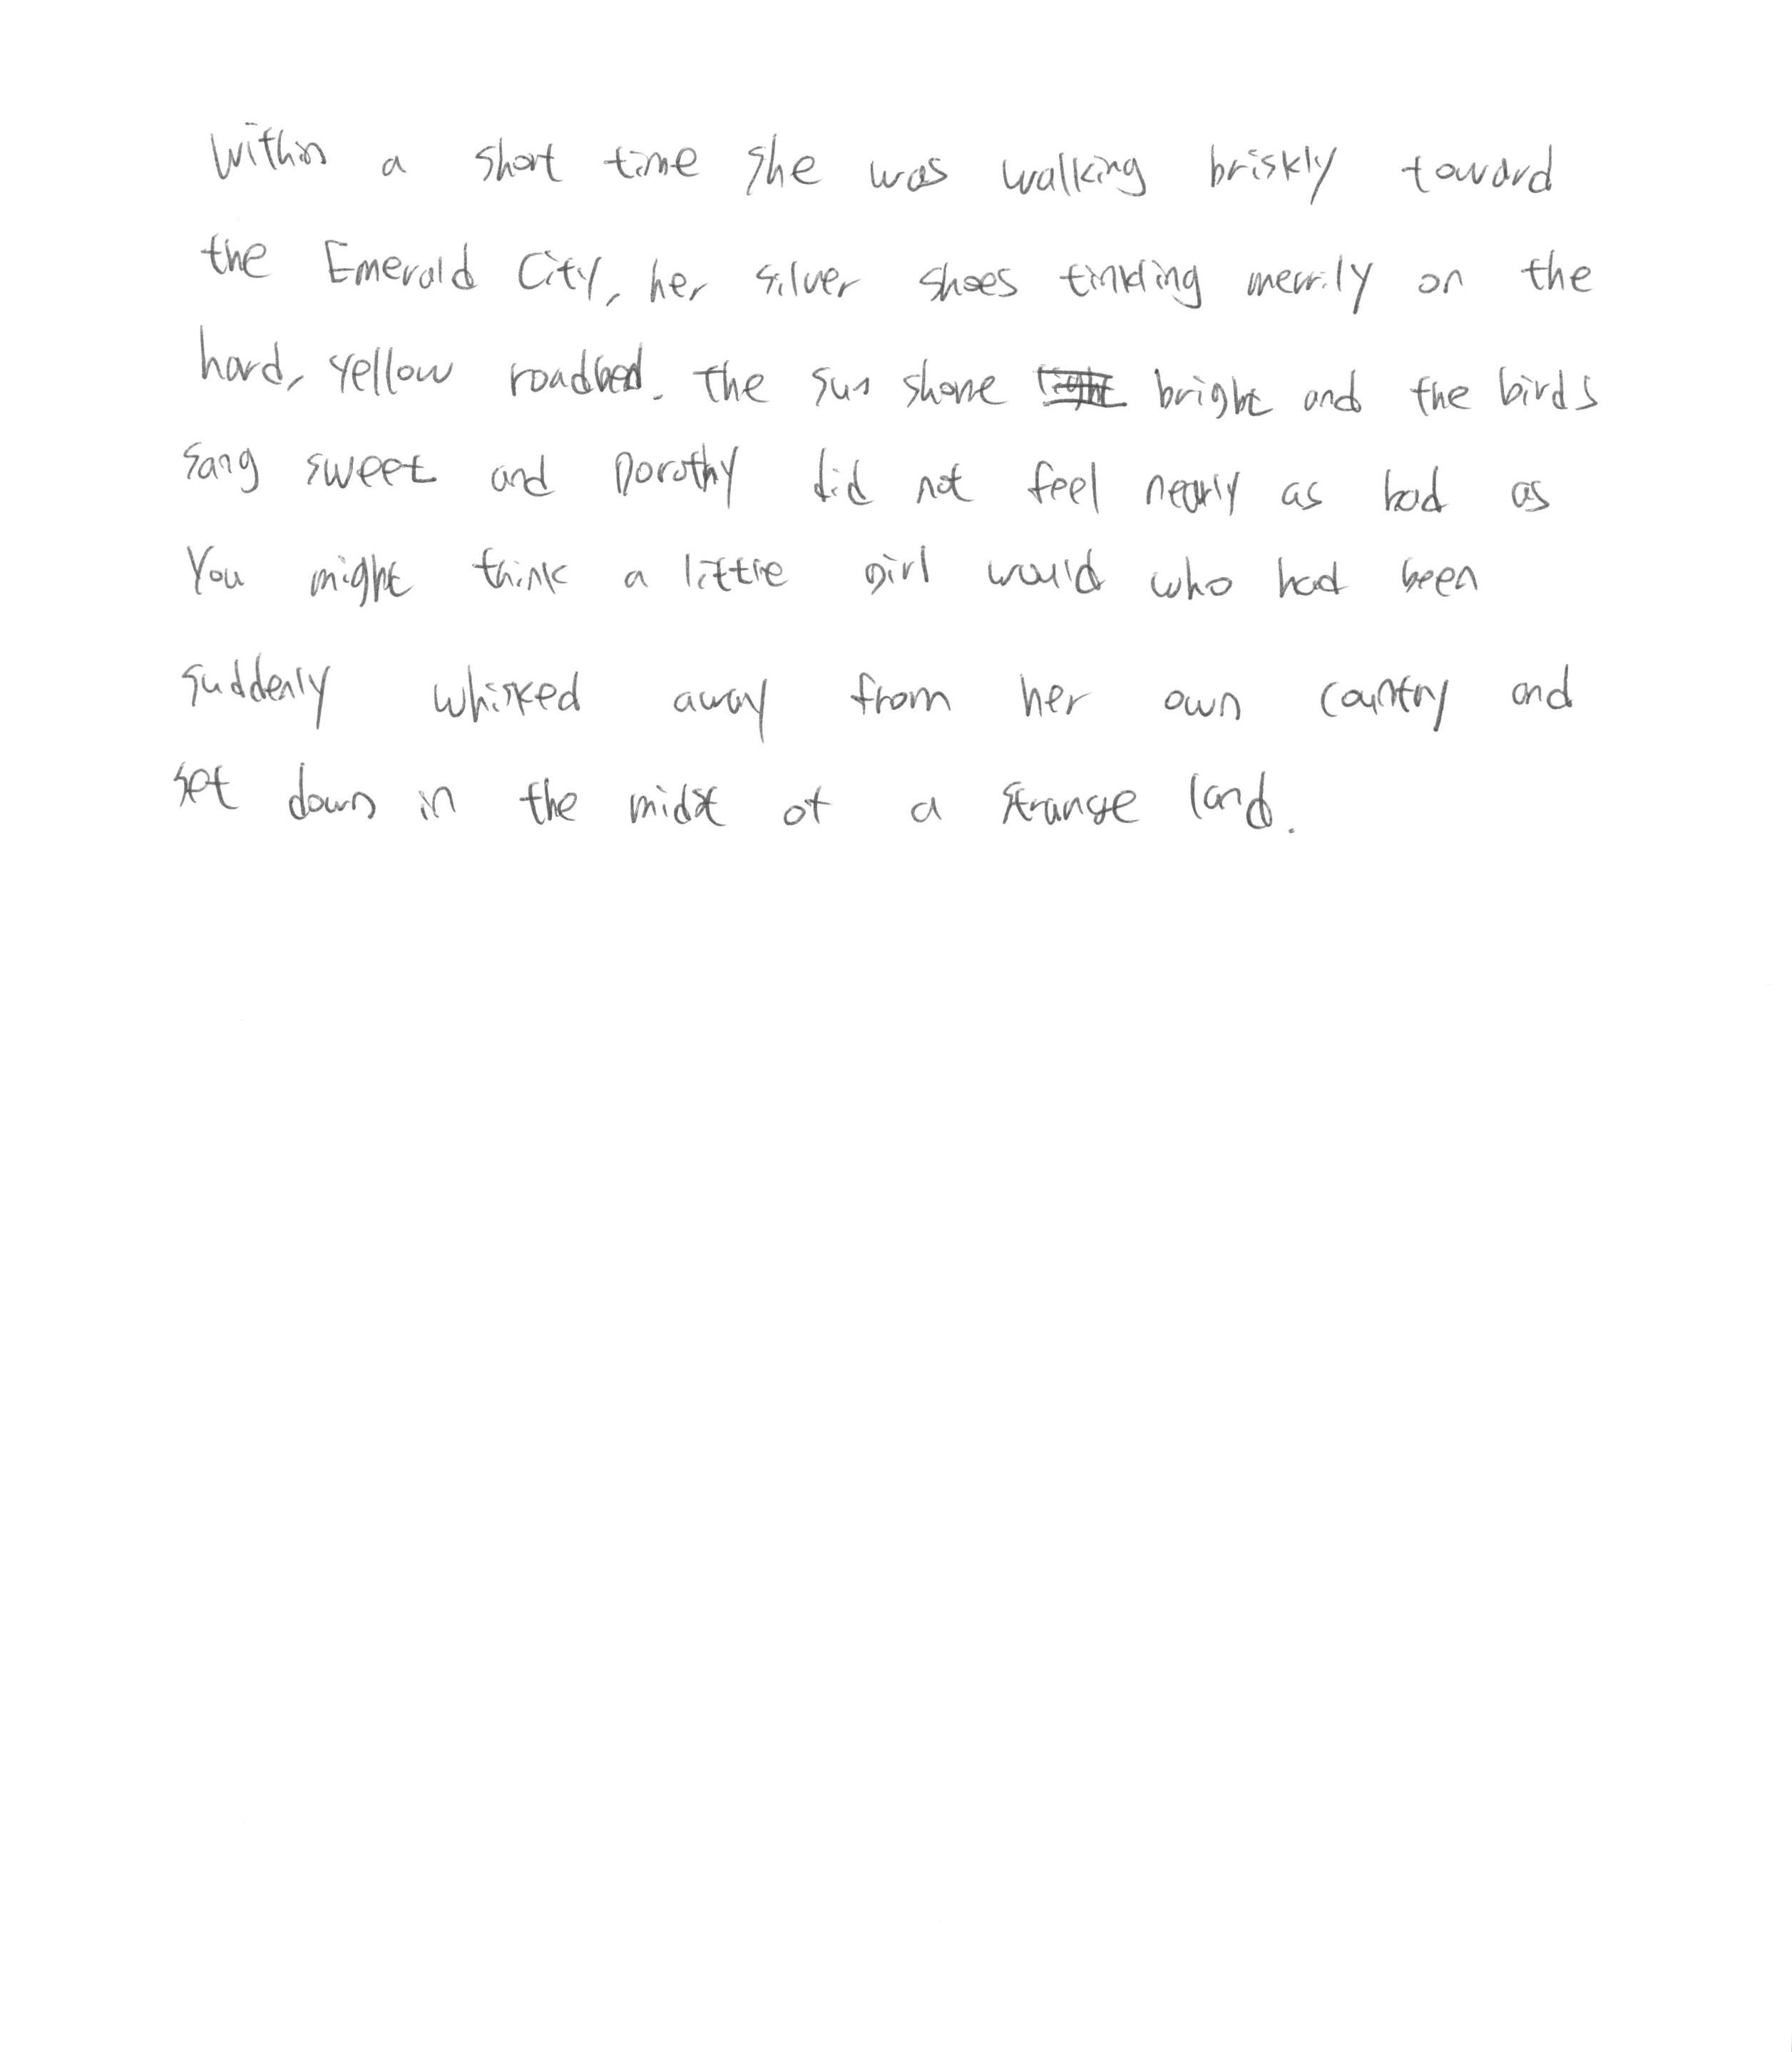 Within a short time she was walking briskly toward
the Emerald City, her silver shoes tinkling merrily on the
hard, yellow roadbed. The sun shone bright and the birds
sang sweet and Dorothy did not feel nearly as bad as
you might think a little girl would who had been
suddenly whisked away from her own country and
set down in the midst of a strange land.